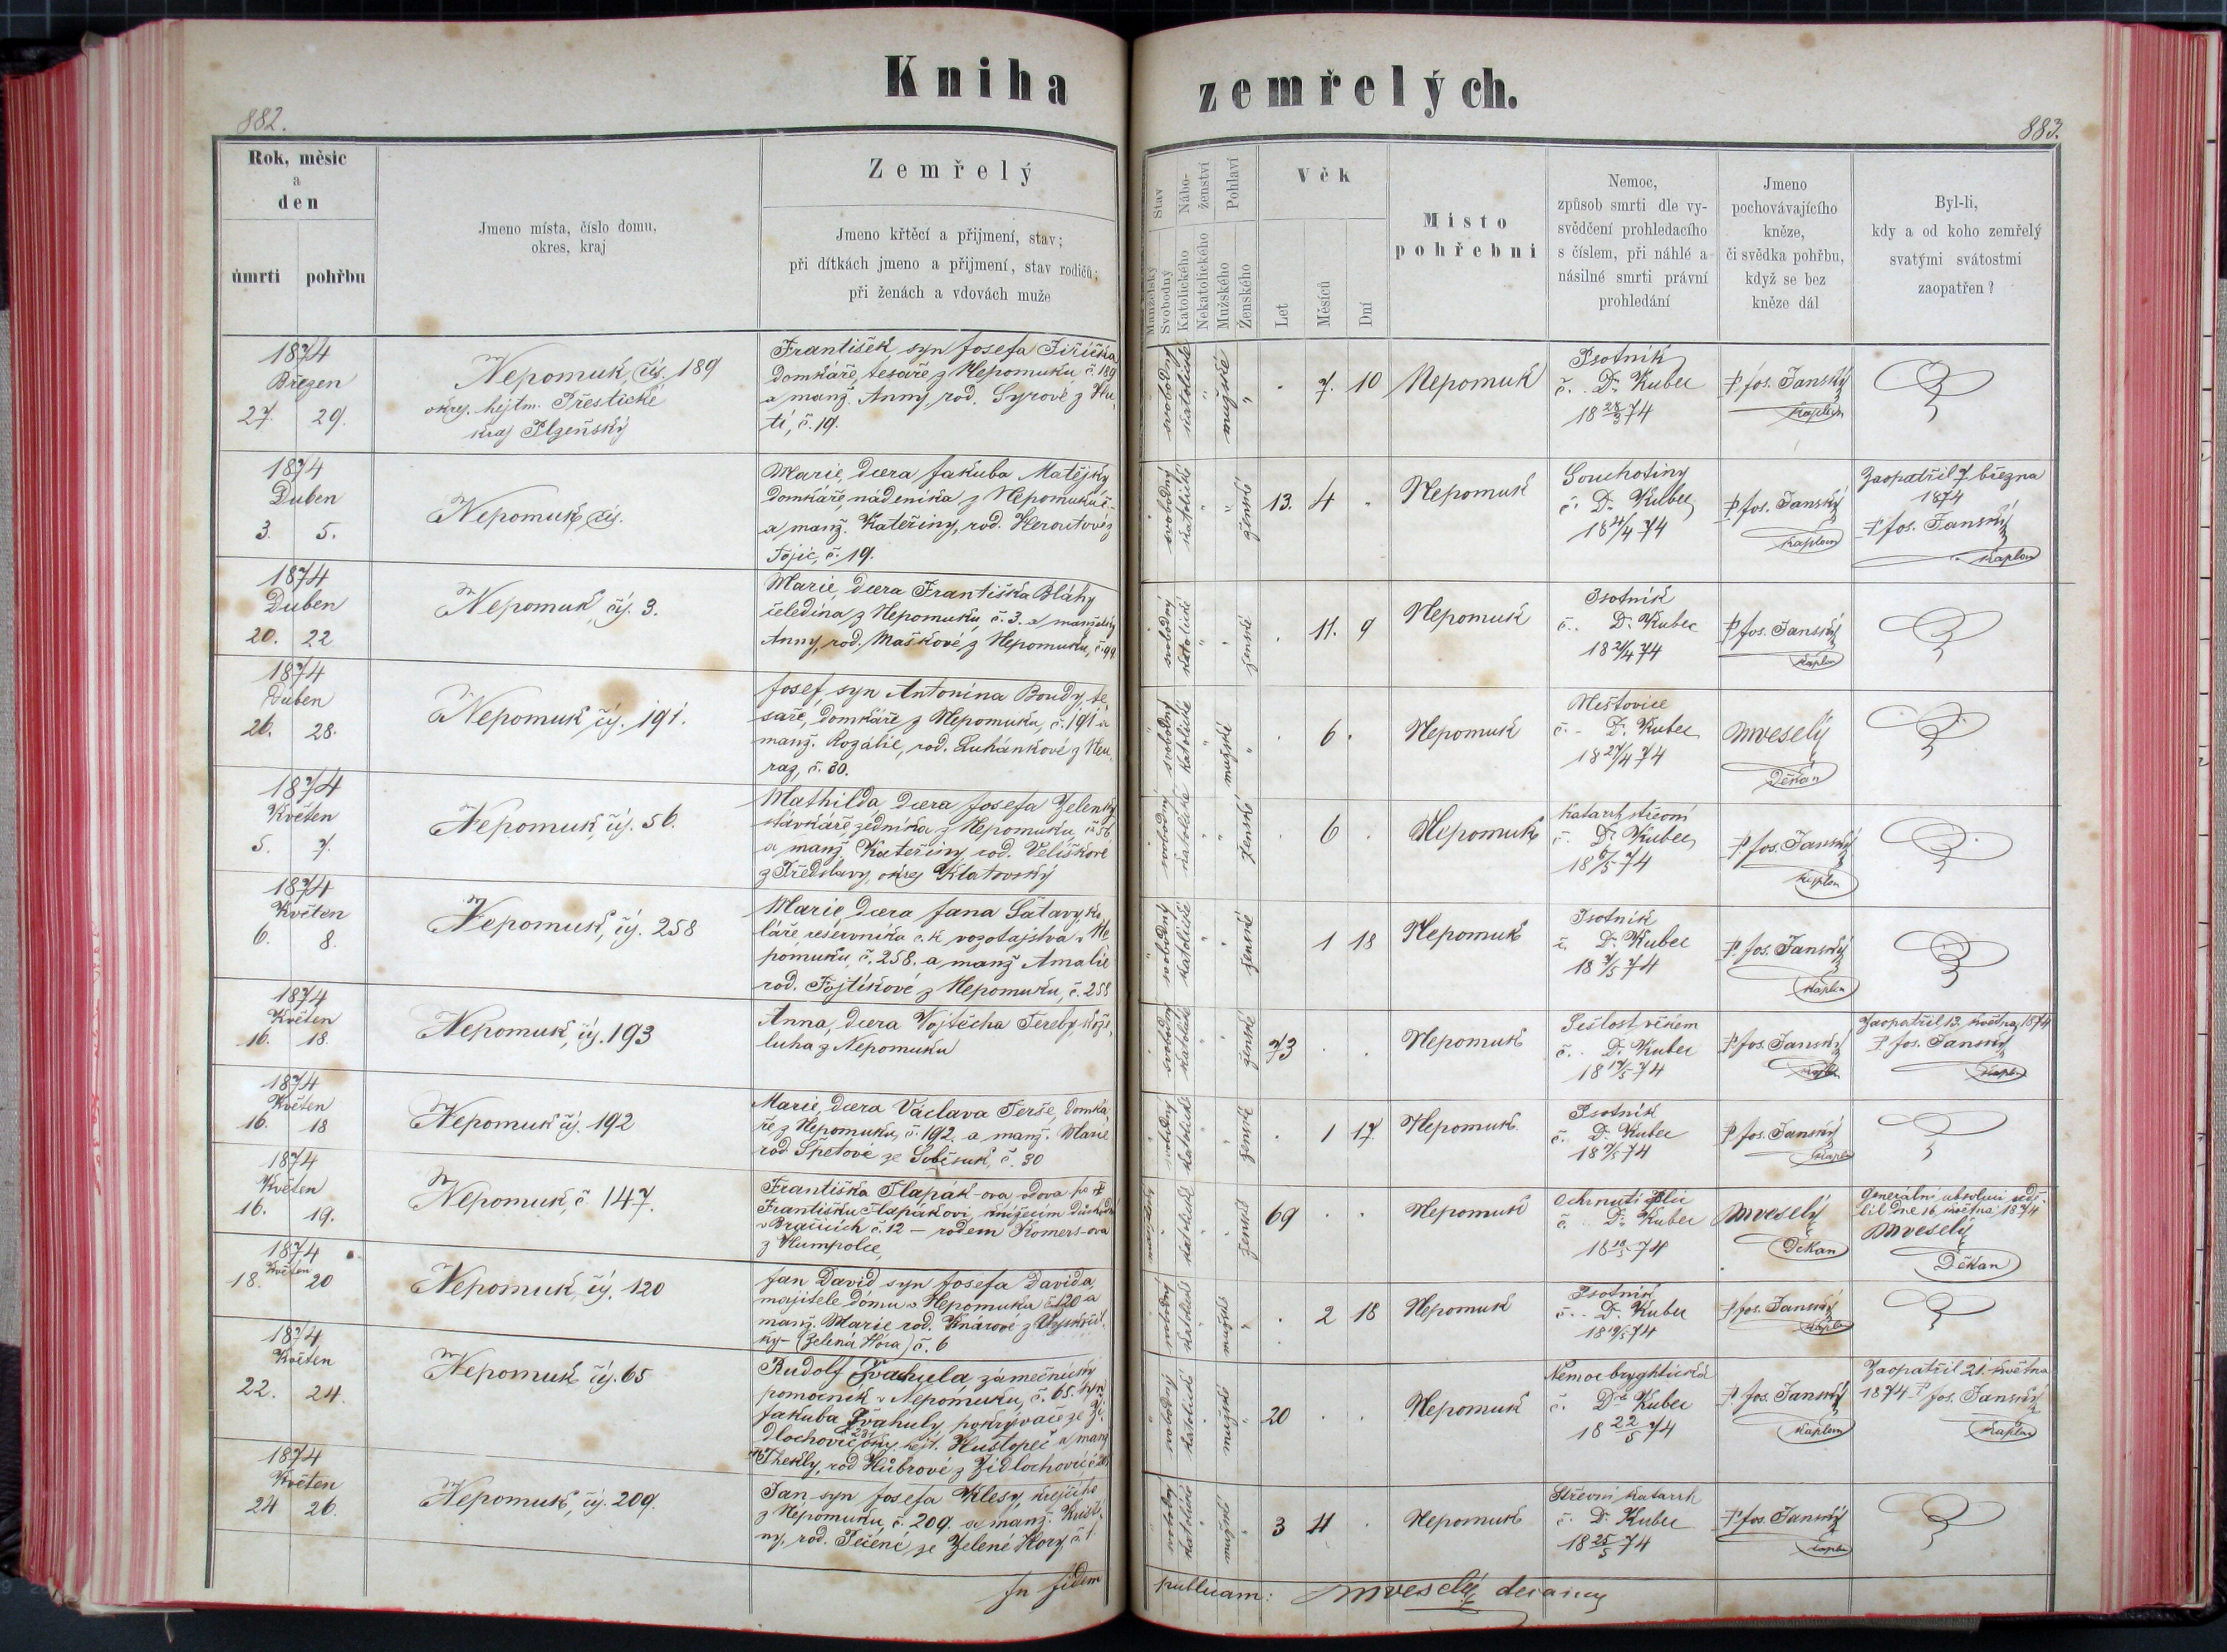 Kniha zemřelých.
882.
883.
Rok, měsíc
a
den
úmrtí pohřbu
Jmeno místa, číslo domu,
okres, kraj
Zemřelý
Jmeno křtěcí a přijmení, stav;
při dítkách jmeno a přijmení, stav rodičů;
při ženách a vdovách muže
Stav
Manželský
Svobodný
Nábo-
ženství
Katolického
Nekatolického
Pohlaví
Mužského
Ženského
Věk
Let
Měsíců
Dní
Místo
pohřebni
Nemoc,
způsob smrti dle vy-
svědčení prohledacího
s číslem, při náhlé a
násilné smrti právní
prohledání
Jmeno
pochovávajícího
kněze,
či svědka pohřbu,
když se bez
kněze dál
Byl-li,
kdy a od koho zemřelý
svatými svátostmi
zaopatřen?
1874
Březen
27. 29.
Nepomuk, čís. 189
okres. hejtm. Přestické
kraj Plzeňský
František, syn Josefa Jiřička
domkáře, tesaře z Nepomuku č. 189
a manž. Anny, rod. Syrové z Hu-
ti, č. 19.
svobodný
katolické
mužské
. 7. 10
Nepomuk
Psotník
č. Dr. Kubec
18 28/3 74
P. Jos. Janský
kaplan
1874
Duben
3. 5.
Nepomuk, čís.
Marie, dcera Jakuba Matějky
domkáře, nádeníka z Nepomuku č.-
a manž. Kateřiny, rod. Heroutové z
Tojic, č. 19.
svobodný
katolické
ženské
13. 4 .
Nepomuk
Souchotiny
č. Dr. Kubec
18 4/4 74
P. Jos. Janský
kaplan
Zaopatřil 7. března
1874
P. Jos. Janský
kaplan
1874
Duben
20. 22
Nepomuk, čís. 3.
Marie, dcera Františka Bláhy
čeledína z Nepomuku, č. 3. a manželky
Anny, rod. Maškové z Nepomuku, č. 99
svobodný
katolické
ženské
. 11. 9
Nepomuk
Psotník
č.. Dr. Kubec
18 21/4 74
P. Jos. Janský
kaplan
1874
Duben
26. 28.
Nepomuk čís. 191.
Josef, syn Antonína Boudy, te-
saře, domkáře z Nepomuku, č. 191 a
manž. Rozálie, rod. Luhánkové z Neu-
raz, č. 30.
svobodný
katolické
mužské
. 6 .
Nepomuk
Neštovice
č.- Dr. Kubec
18 27/4 74
MVeselý
Děkan
1874
Květen
5. 7.
Nepomuk, čís. 56.
Mathilda, dcera Josefa Zelenky
stávkáře, zedníka z Nepomuku, č. 56
a manž. Kateřiny, rod. Veliškové
z Předslavy, okres Klatovský
svobodný
katolické
ženské
. 6 .
Nepomuk
Katarrh střevní
č. Dr. Kubec
18 6/5 74
P. Jos. Janský
kaplan
1874
Květen
6. 8.
Nepomuk, čís. 258
Marie, dcera Jana Šatavy, ko-
láře, reservníka c. k. vozotajstva v Ne-
pomuku, č. 258. a manž. Amalie
rod. Fojtíkové z Nepomuku, č. 258
svobodný
katolické
ženské
1 18
Nepomuk
Psotník
č. Dr. Kubec
18 7/5 74
P. Jos. Janský
kaplan
1874
Květen
16. 18.
Nepomuk, čís. 193
Anna, dcera Vojtěcha Tereby, kože-
luha z Nepomuku
svobodný
katolické
ženské
73 . .
Nepomuk
Sešlost věkem
č.. Dr. Kubec
18 17/5 74
P. Jos. Janský
kaplan
Zaopatřil 13. května 1874
P. Jos. Janský
kaplan
1874
Květen
16. 18
Nepomuk čís. 192
Marie, dcera Václava Terše, domká-
ře z Nepomuku, č. 192. a manž. Marie
rod. Špetové ze Soběsuk, č. 30
svobodný
katolické
ženské
. 1 17.
Nepomuk
Psotník
č. Dr. Kubec
P. Jos. Janský
kaplan
1874
Květen
16. 19.
Nepomuk, č 147.
Františka Tlapák-ova vdova po †
Františku Tlapákovi, knížecím důchodn.
v č. 12 – rodem Komers-ova
z Humpolce
katolické
ženské
69 . .
Nepomuk
Ochrnutí plic
č. Dr. Kubec
18 18/5 74
MVeselý
Děkan
Generální absoluci udě-
lil dne 16. května 1874
MVeselý
Děkan
1874
Květen
18. 20
Nepomuk, čís. 120
Jan David, syn Josefa Davida,
majitele domu v Nepomuku č. 120 a
manž. Marie rod. Knárové z
ky - (Zelená Hora) č. 6
svobodný
katolické
mužské
. 2 18
Nepomuk
Psotník
č.. Dr. Kubec
18 19/5 74
P. Jos. Janský
kaplan
1874
Květen
22. 24.
Nepomuk čís. 65
Rudolf zámečnický
pomocník v Nepomuku, č. 65. syn
Jakuba pokrývače ze Ži-
dlochovic, okr. hejt. Hustopeč a manž
Thekly, rod Hübrové z Židlochovic č. 231
svobodný
katolické
mužské
20 . .
Nepomuk
Nemoc bryghtická
č. Dr. Kubec
18 22/5 74
P. Jos. Janský
kaplan
Zaopatřil 21. května
1874 P. Jos. Janský
kaplan
1874
Květen
24 26.
Nepomuk, čís. 209.
Jan syn Josefa Klesy, krejčího
z Nepomuku, č. 209. a manž. Kristi-
ny, rod. Pečené ze Zelené Hory, č. 1.
svobodný
katolické
mužské
3 4 .
Nepomuk
Střevní katarrh
č. Dr. Kubec
18 25/5 74
P. Jos. Janský
kaplan
In fidem publicam: MVeselý decanus